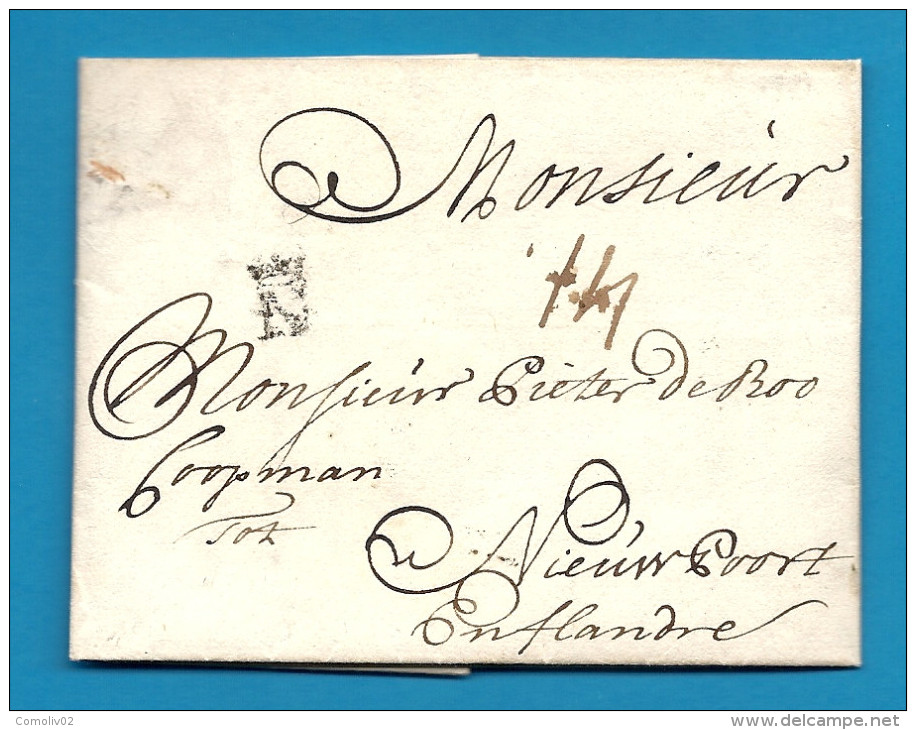 Monsieur
Monsieur Pieter de Roo
Coopman
Tot
Nieuw Poort
En flandre
Comoliv02
www.delcampe.net